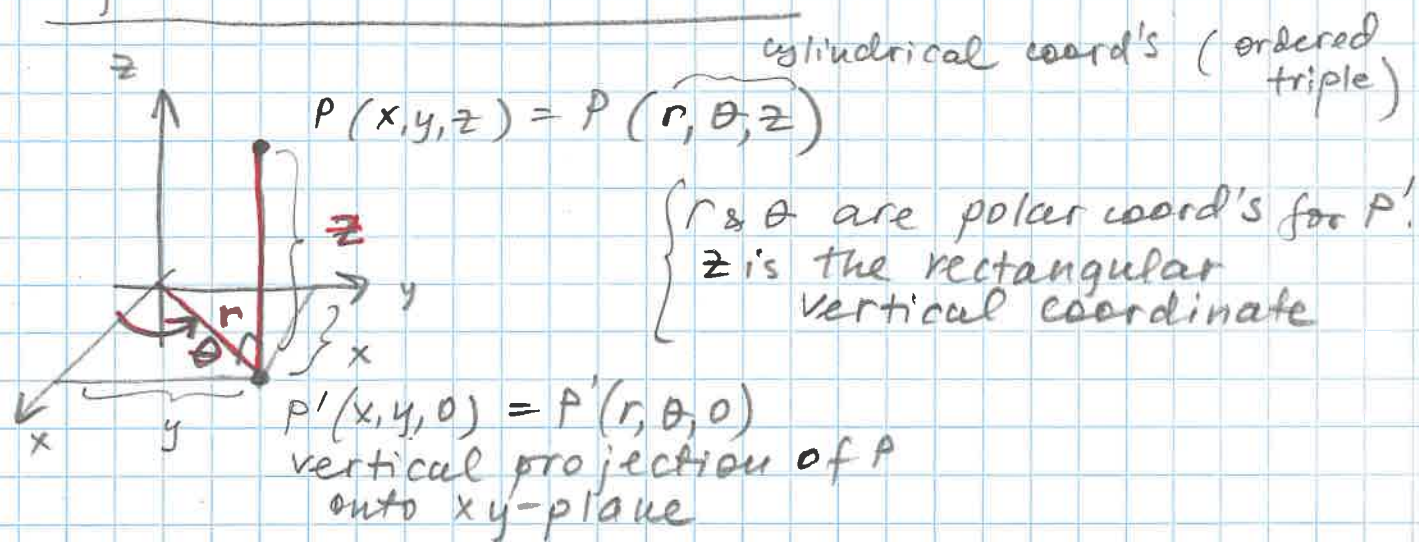 cylindrical coord's (ordered
triple)
z
P(x,y,z) = P(r,θ,z)
r & θ are polar coord's for P'.
z
z is the rectangular
vertical coordinate
y
r
θ
x
P'(x,y,0) = P'(r,θ,0)
x
y
vertical projection of P
onto xy-plane